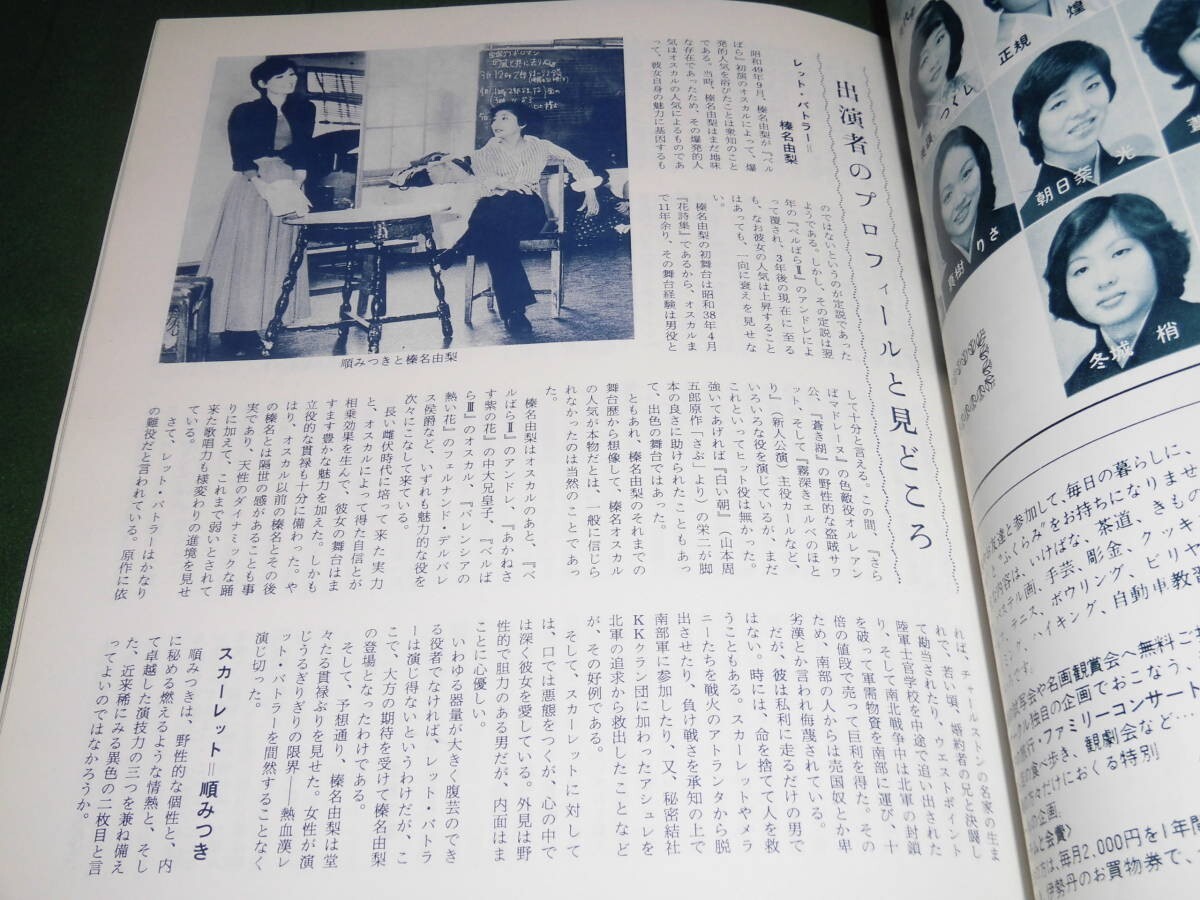 出演者のプロフィールと見どころ
レット・バトラー＝
榛名由梨
昭和49年9月、榛名由梨が『ベル
ばら』初演のオスカルによって、爆
発的人気を浴びたことは衆知のこと
である。当時、榛名由梨はまだ地味
な存在であったため、その爆発的人
気はオスカルの人気によるものであ
って、彼女自身の魅力に基因するも
のではないというのが定説であった
ようである。しかし、その定説は翌
年の『ベルばらⅡ』のアンドレによ
って覆され、3年後の現在に至る
も、なお彼女の人気は上昇すること
はあっても、一向に衰えを見せな
い。
榛名由梨の初舞台は昭和38年4月
『花詩集』であるから、オスカルま
で11年余り、その舞台経験は男役と
して十分と言える。この間、『さら
ばマドレーヌ』の色敵役オルレアン
公、『蒼き湖』の野性的な盗賊サワ
ット、そして『霧深きエルベのほと
り』（新人公演）主役カールなど、
いろいろな役を演じているが、まだ
これといってヒット役は無かった。
強いてあげれば『白い朝』（山本周
五郎原作「さぶ」より）の栄二が脚
本の良さに助けられたこともあっ
て、出色の舞台ではあった。
ともあれ、榛名由梨のそれまでの
舞台歴から想像して、榛名オスカル
の人気が本物だとは、一般に信じら
れなかったのは当然のことであっ
た。
榛名由梨はオスカルのあと、『ベ
ルばらⅡ』のアンドレ、『あかねさ
す紫の花』の中大兄皇子、『ベルば
らⅢ』のオスカル、『バレンシアの
熱い花』のフェルナンド・デルバレ
ス侯爵など、いずれも魅力的な役を
次々にこなして来ている。
長い雌伏時代に培って来た実力
と、オスカルによって得た自信とが
相乗効果を生んで、彼女の舞台はま
すます豊かな魅力を加えた。しかも
立役的な貫禄も十分に備わった。や
はり、オスカル以前の榛名とその後
の榛名とは隔世の感があることも事
実であり、天性のダイナミックな踊
りに加えて、これまで弱いとされて
来た歌唱力も様変わりの進境を見せ
ている。
さて、レット・バトラーはかなり
の難役だと言われている。原作に依
れば、チャールストンの名家の生ま
れで、若い頃、婚約者の兄と決闘し
て勘当されたり、ウエストポイント
陸軍士官学校を中途で追い出された
り、そして南北戦争中は北軍の封鎖
を破って軍需物資を南部に運び、十
倍の値段で売って巨利を得た。その
ため、南部の人からは売国奴とか卑
劣漢とか言われ侮蔑されている。
だが、彼は私利に走るだけの男で
はない。時には、命を捨てて人を救
うこともある。スカーレットやメラ
ニーたちを戦火のアトランタから脱
出させたり、負け戦さを承知の上で
南部軍に参加したり、又、秘密結社
KKクラン団に加わったアシュレを
北軍の追求から救出したことなど
が、その好例である。
そして、スカーレットに対して
は、口では悪態をつくが、心の中で
は深く彼女を愛している。外見は野
性的で胆力のある男だが、内面はま
ことに心優しい。
いわゆる器量が大きく腹芸のでき
る役者でなければ、レット・バトラ
ーは演じ得ないというわけだが、こ
こで、大方の期待を受けて榛名由梨
の登場となったわけである。
そして、予想通り、榛名由梨は堂
々たる貫禄ぶりを見せた。女性が演
じうるぎりぎりの限界――熱血漢レ
ット・バトラーを間然することなく
演じ切った。
スカーレット＝順みつき
順みつきは、野性的な個性と、内
に秘める燃えるような情熱と、そし
て卓越した演技力の三つを兼ね備え
た、近来稀にみる異色の二枚目と言
ってよいのではなかろうか。
順みつきと榛名由梨
煌
正規
つくし
朝日奈 光
真樹 りさ
冬城 梢
達と参加して、毎日の暮らしに、
ふくらみ"をお持ちになりませ
内容は、いけばな、茶道、きもの
ステル画、手芸、彫金、クッキ
テニス、ボウリング、ビリヤ
ミング、ハイキング、自動車教習
です。
試写会や名画観賞会へ無料ご
クル独自の企画でおこなう、
旅行・ファミリーコンサート
の食べ歩き、観劇会など…
の方々だけにおくる特別
の企画。
と会費〉
の方は、毎月2,000円を1年間
伊勢丹のお買物券で、